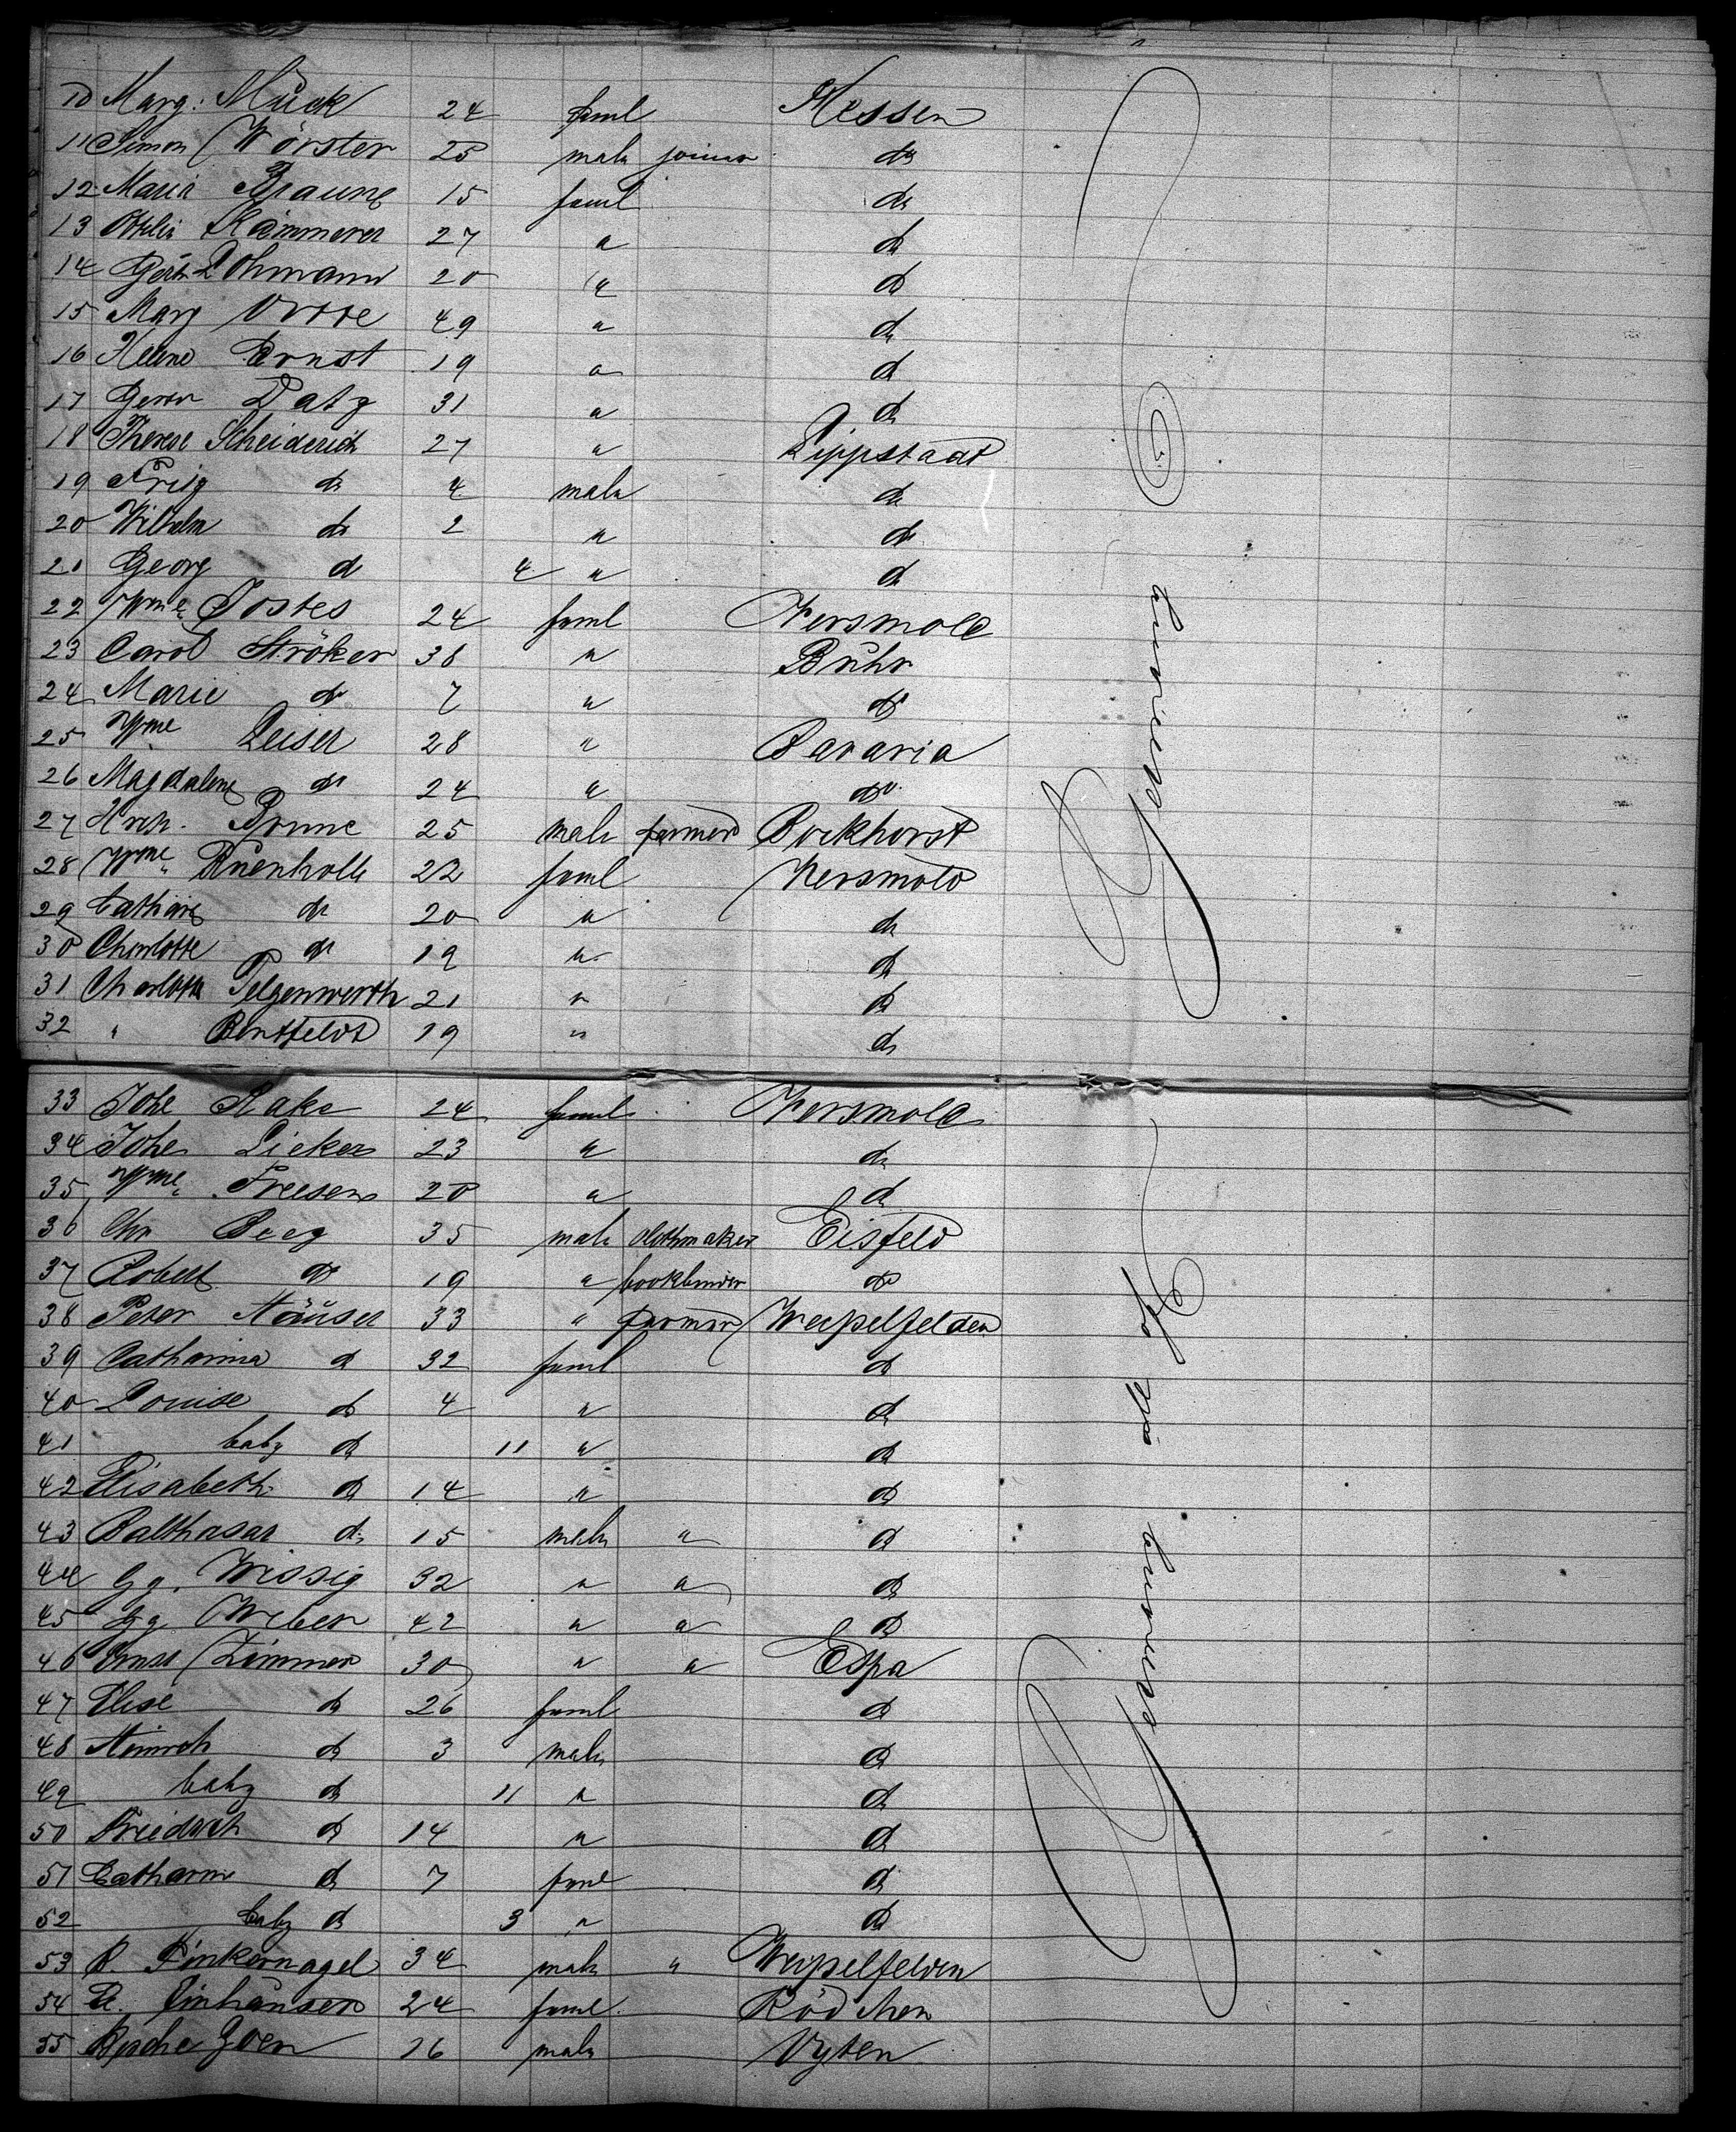 10 Marg: Mück 24 feml Hessen
11 Simon Wörster 25 male joiner do
12 Maria Braune 15 feml do
13 Ottilie Kämmerer 27 " do
14 Gertr. Lohmann 20 " do
15 Marg 49 " do
16 Helene Ernst 19 " do
17 Datz 31 " do
18 Therese Scheiderich 27 " Lippstadt
19 Fritz do 4 male do
20 Wilhelm do 2 " do
21 Georg do 4 " do
22 Wme Jostes 24 feml Versmold
23 Carol Ströker 38 " Buhr
24 Marie do 7 " do
25 Wme Leiser 28 " Bavaria
26 Magdalene do 24 " do
27 Hrch. Brune 25 male farmer Bockhorst
28 Wme 22 feml Versmold
29 Cathare do 20 " do
30 Charlotte do 19 " do
31 Charlotte Telgenwerth 21 " do
32 " Bentfeldt 19 " do
33 Johe Hake 24 feml Versmold
34 Johe Lieker 23 " do
35 Wme Freesen 20 " do
36 Chr Beeg 35 male clothmaker Eisfeld
37 Robert do 19 " bookbinder do
38 Peter Häuser 33 " farmer Weipelfelden
39 Catharina do 32 feml do
40 Louise do 4 " do
41 baby do 11 " do
42 Elisabeth do 14 " do
43 Balthasar do 15 male " do
44 Gg. Wissig 32 " " do
45 Gg. Weber 42 " " do
46 Ernst Zimmer 30 " " Espa
47 Elise do 26 feml do
48 Heinrich do 3 male do
49 baby do 11 " do
50 Friedrich do 14 " do
51 Catharine do 7 feml do
52 baby do 3 " do
53 R. Finkernagel 34 male " Weipelfelden
54 E. Einhäuser 24 feml Rödchen
55 26 male Vyten
Germany
to the
Germany